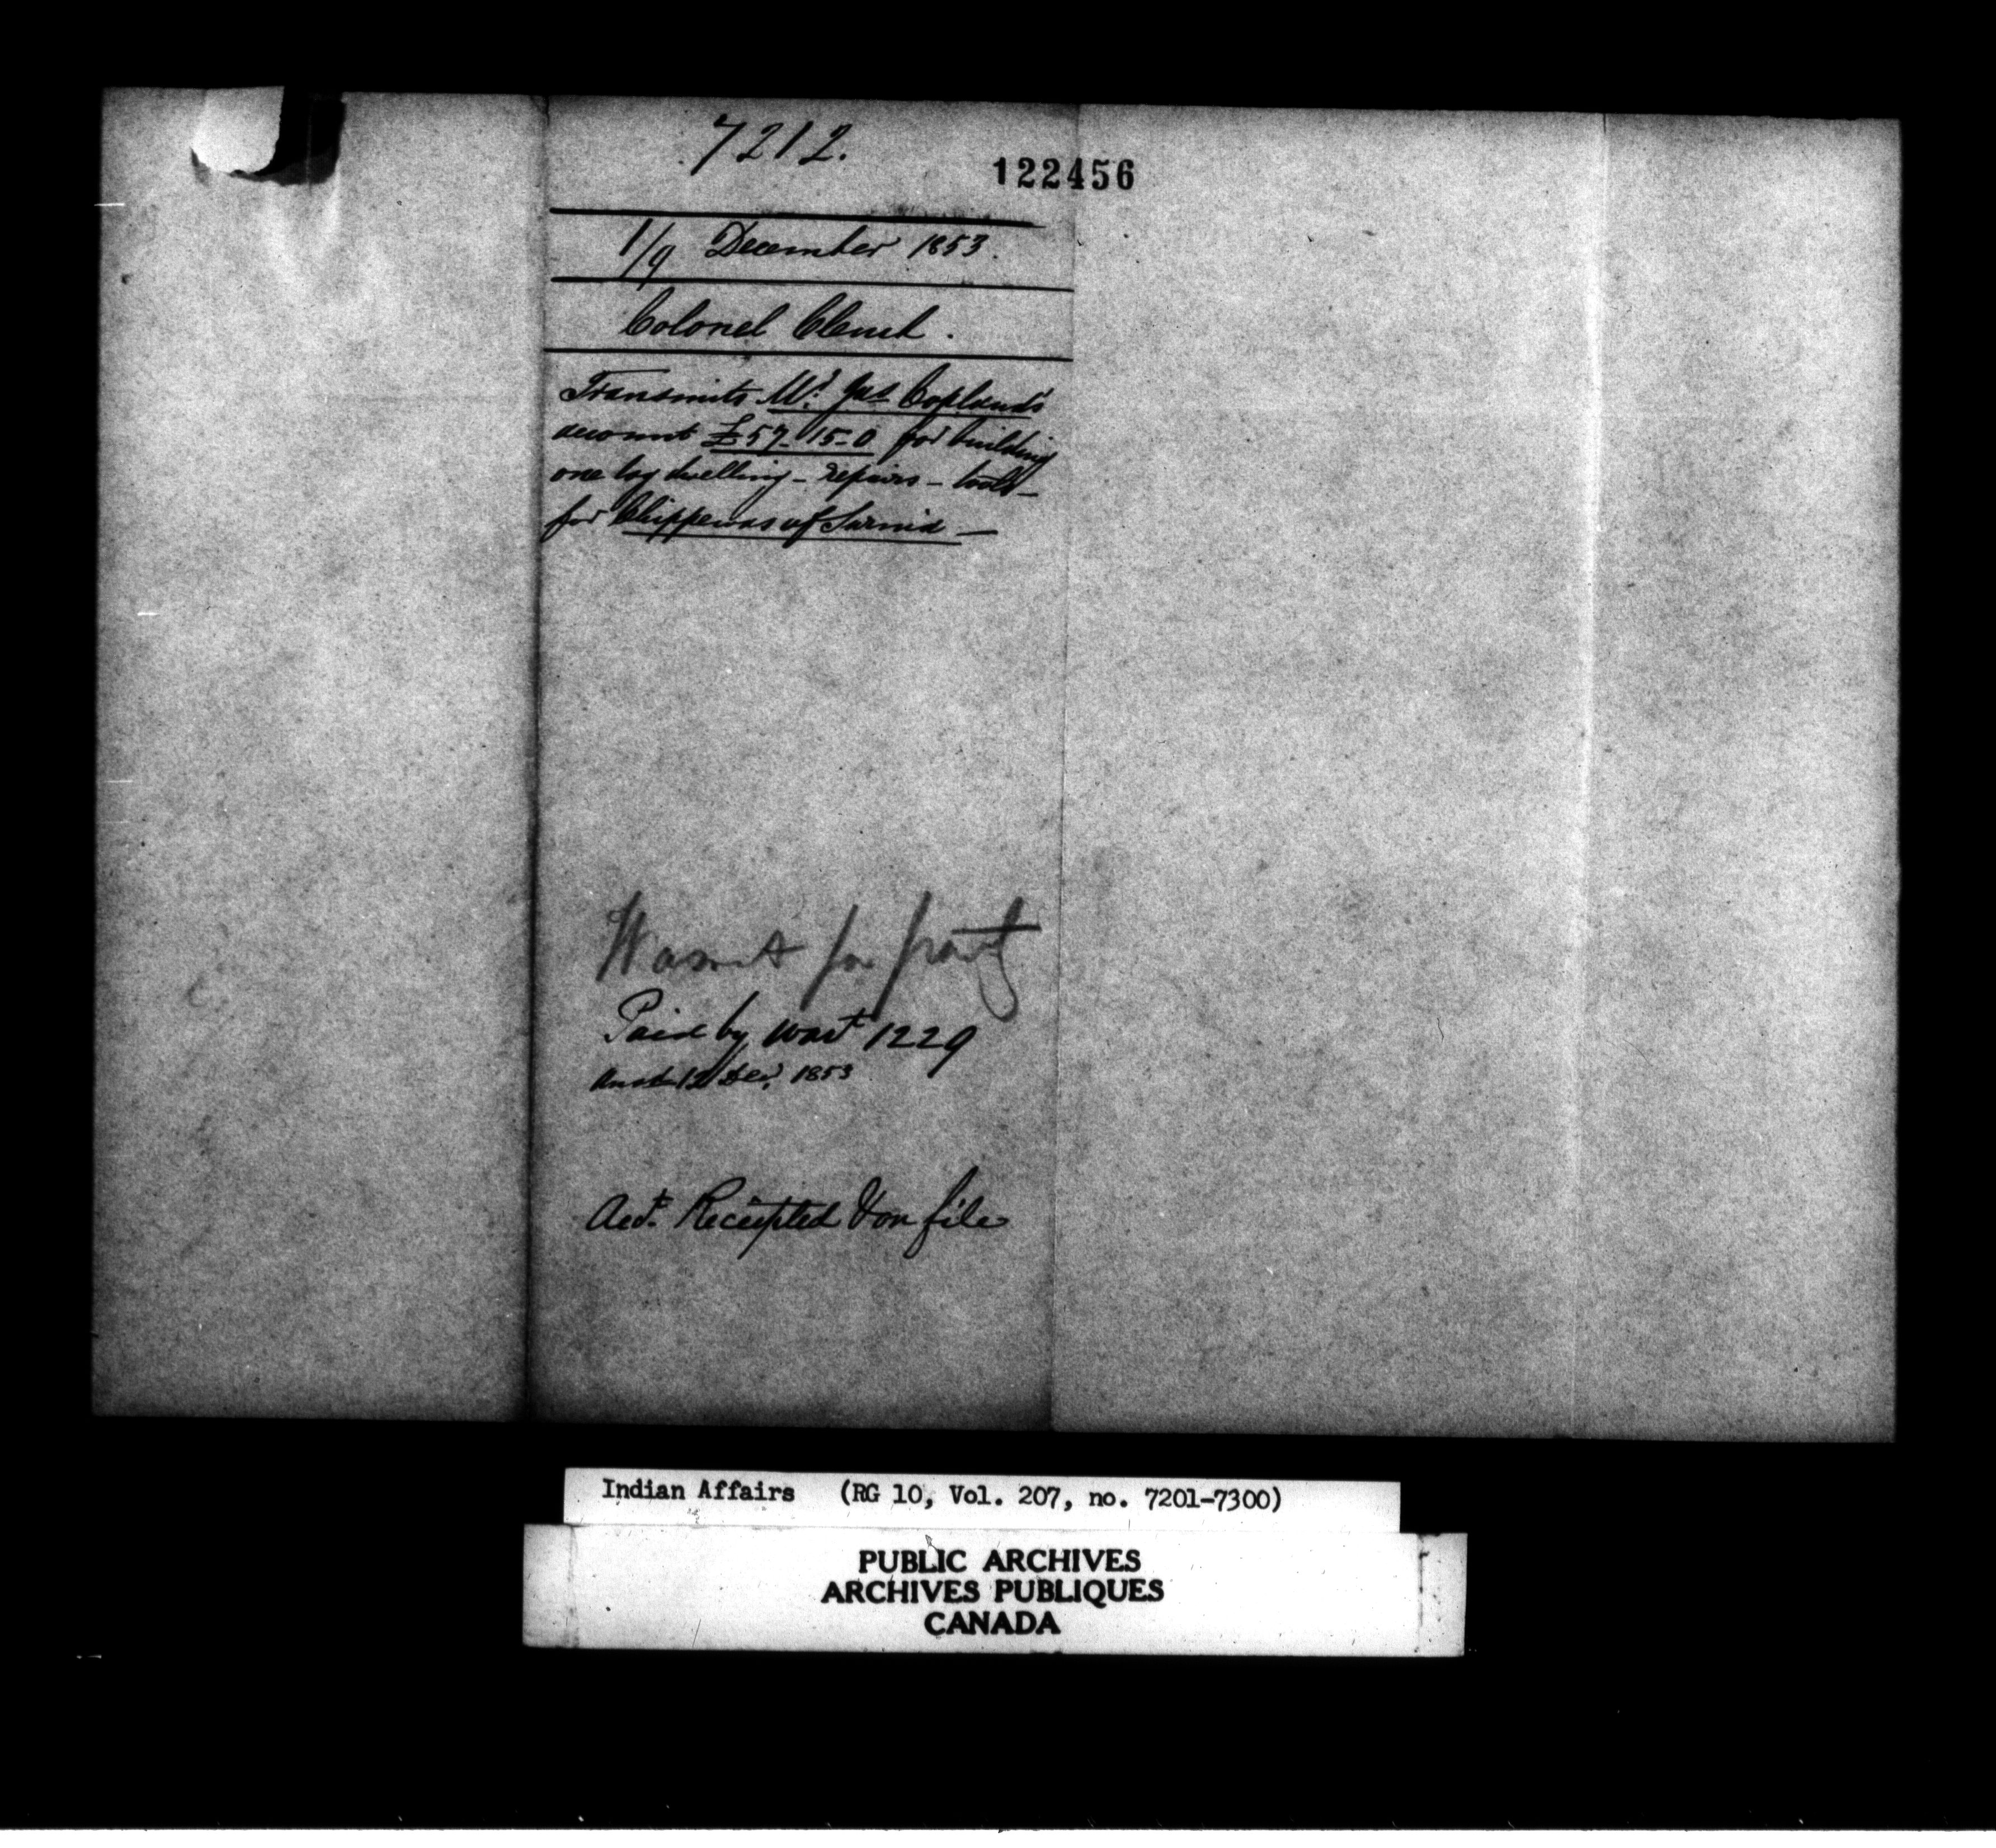 7212.
122456
1/9 December 1853.
Colonel Clench.
Transmits Mr. Jas Copland's
account £57-15-0 for building
one log dwelling - repairs - tools -
for Chippewas of Sarnia -
Warrt for part
Paid by Warrt 1229
Ansd 12 Decr. 1853
Acct. Receipted & on file
Indian Affairs (RG 10, Vol. 207, no. 7201-7300)
PUBLIC ARCHIVES
ARCHIVES PUBLIQUES
CANADA